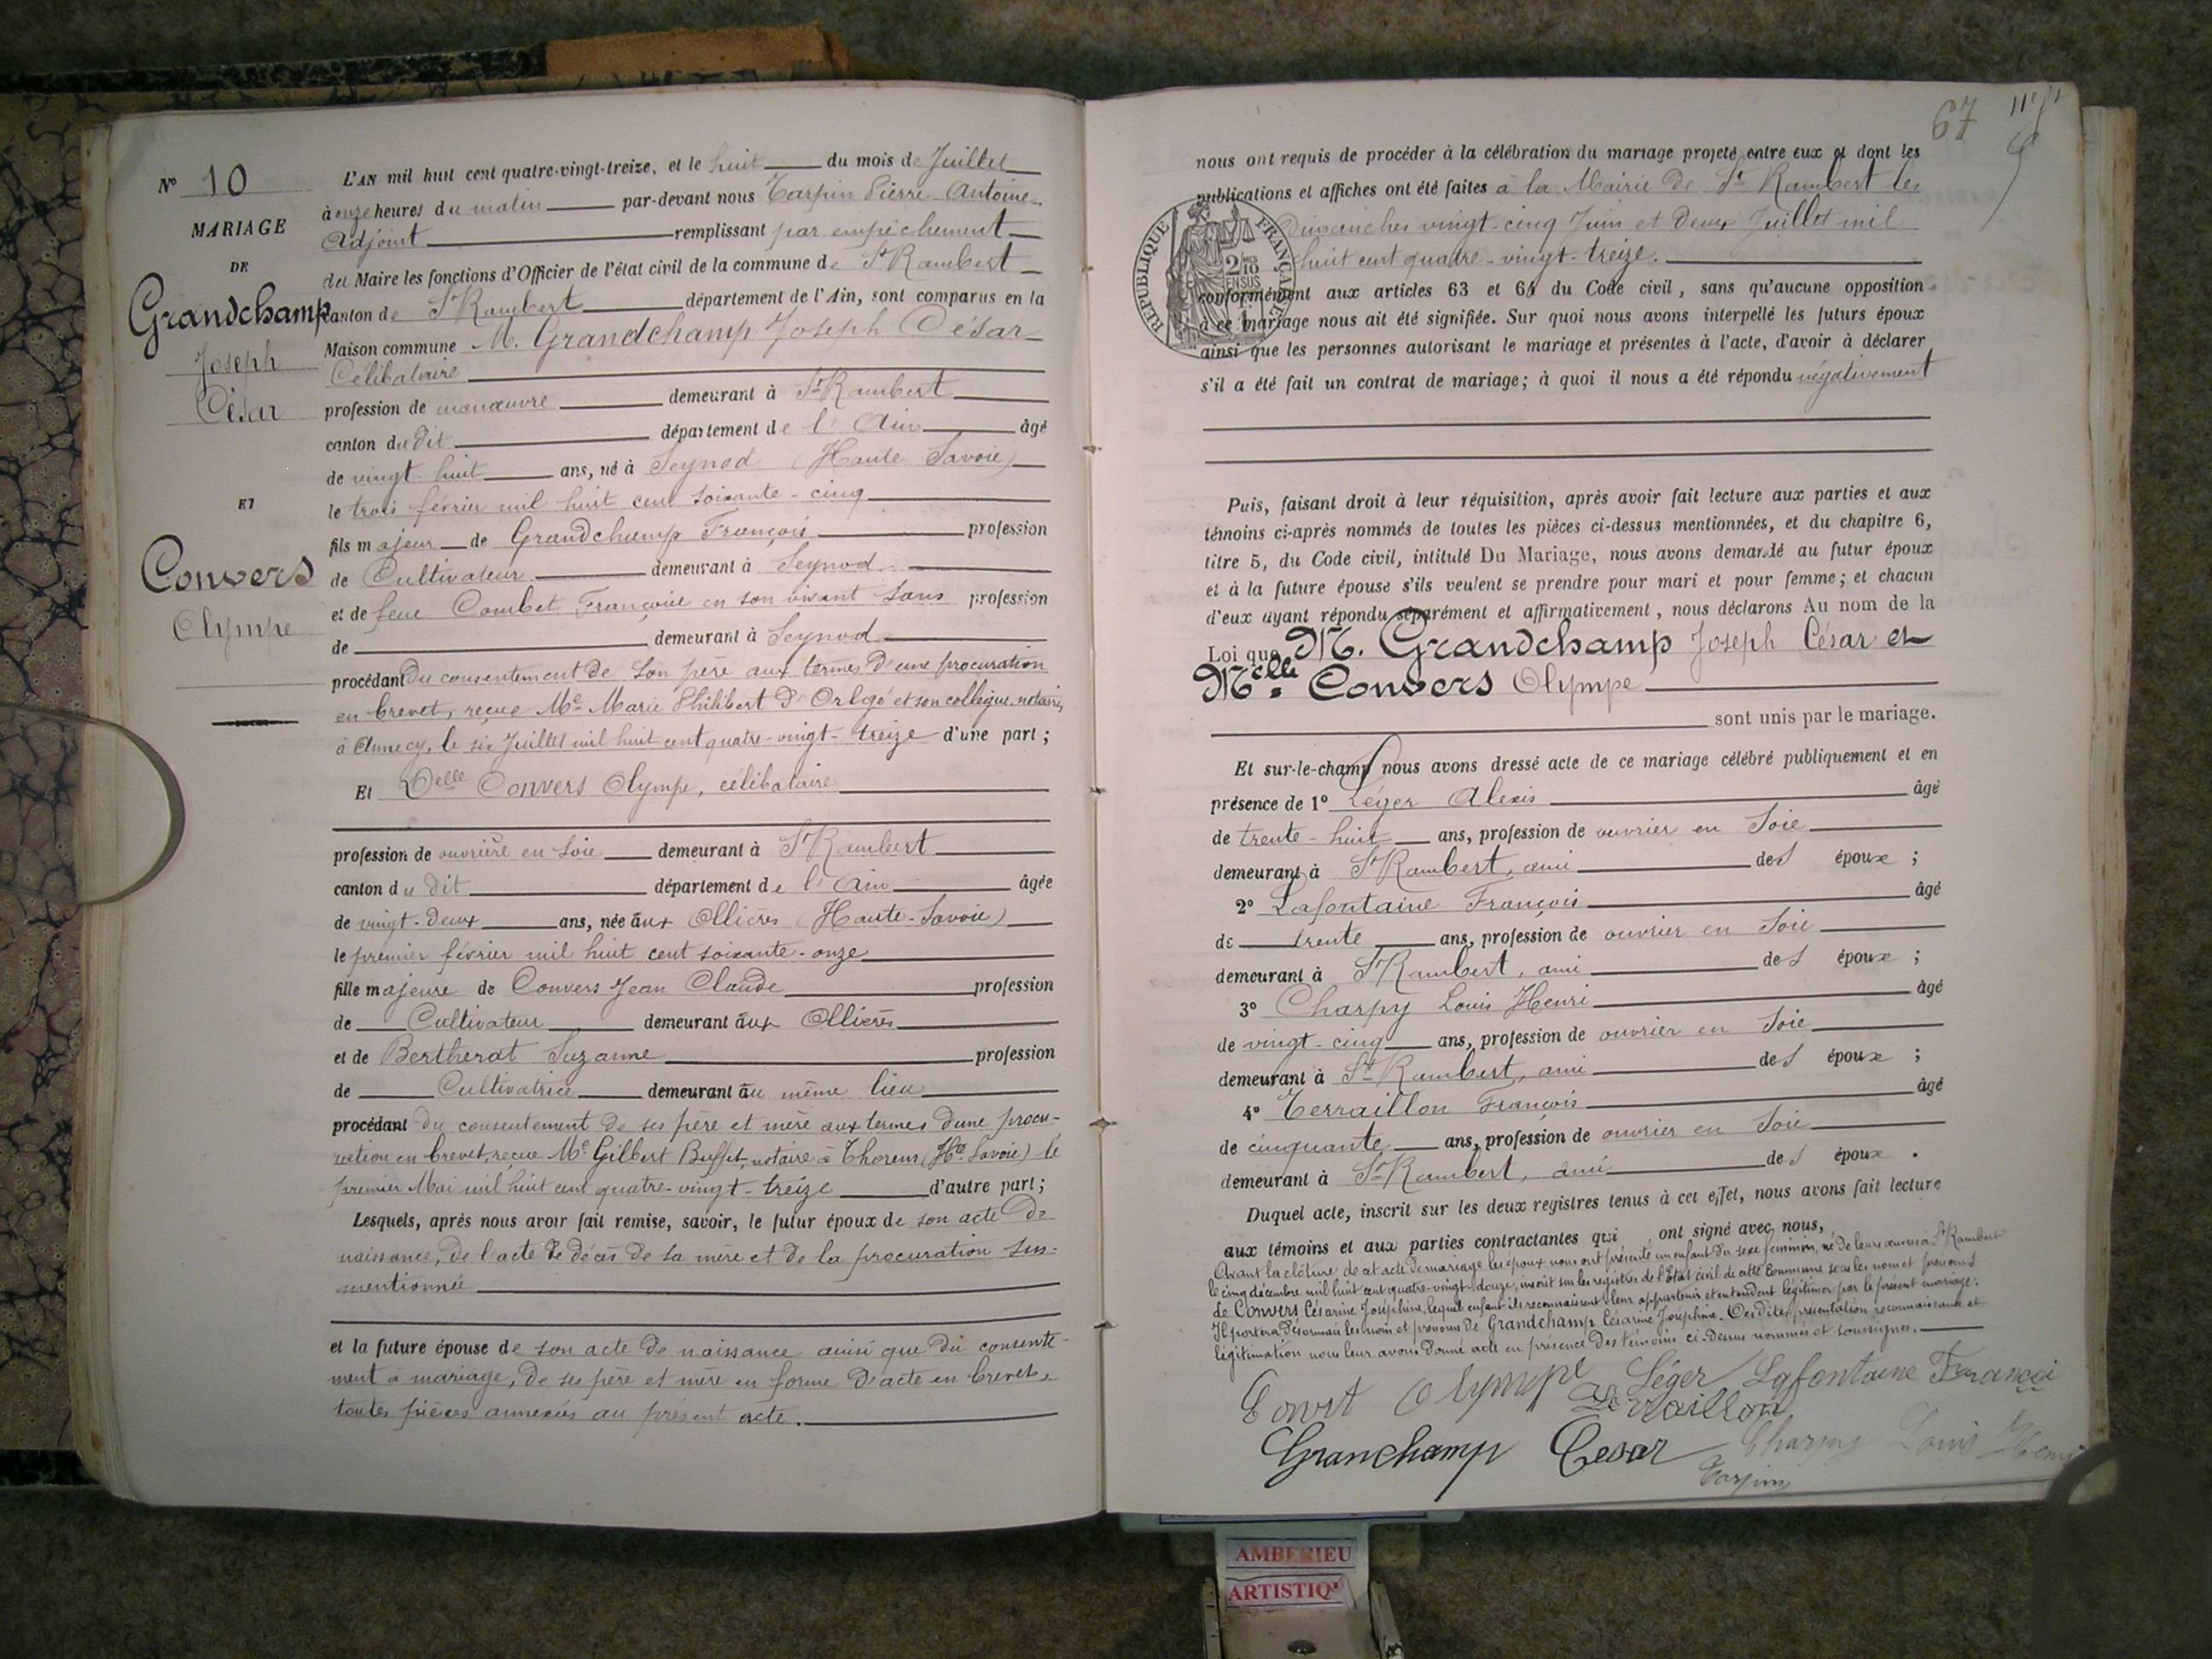 N° 10
MARIAGE
DE
Grandchamp
Joseph
César
ET
Convers
Olympe
L'AN mil huit cent quatre-vingt-treize, et le huit du mois de Juillet
à onze heures du matin par-devant nous Tarpin Pierre-Antoine
Adjoint remplissant par empêchement
du Maire les fonctions d'Officier de l'état civil de la commune de St Rambert
canton de St Rambert département de l'Ain, sont comparus en la
Maison commune M. Grandchamp Joseph César
Célibataire
profession de manœuvre demeurant à St Rambert
canton du dit département de l'Ain âgé
de vingt-huit ans, né à Seynod (Haute Savoie)
le trois février mil huit cent soixante-cinq
fils majeur de Grandchamp François profession
de Cultivateur demeurant à Seynod
et de feue Combet Françoise en son vivant sans profession
de demeurant à Seynod
procédant du consentement de son père aux termes d'une procuration
en brevet, reçue Me Marie Philibert D'Orlyé et son collègue, notaires,
à Annecy, le six Juillet mil huit cent quatre-vingt-treize d'une part ;
Et Delle Convers Olympe, célibataire
profession de ouvrière en soie demeurant à St Rambert
canton du dit département de l'Ain âgée
de vingt-deux ans, née aux Ollières (Haute-Savoie)
le premier février mil huit cent soixante-onze
fille majeure de Convers Jean Claude profession
de Cultivateur demeurant aux Ollières
et de Bertherat Suzanne profession
de Cultivatrice demeurant au même lieu
procédant du consentement de ses père et mère aux termes d'une procu-
ration en brevet, reçue Me Gilbert Buffet, notaire à Thorens (Hte Savoie) le
premier Mai mil huit cent quatre-vingt-treize d'autre part ;
Lesquels, après nous avoir fait remise, savoir, le futur époux de son acte de
naissance, de l'acte de décès de sa mère et de la procuration sus-
mentionnée
et la future épouse de son acte de naissance ainsi que du consente-
ment à mariage, de ses père et mère en forme d'acte en brevet,
toutes pièces annexées au présent acte.
67
nous ont requis de procéder à la célébration du mariage projeté entre eux et dont les
publications et affiches ont été faites à la Mairie de St Rambert les
Dimanches vingt-cinq Juin et deux Juillet mil
huit cent quatre-vingt-treize.
RÉPUBLIQUE FRANÇAISE
2/10 EN SUS
conformément aux articles 63 et 64 du Code civil, sans qu'aucune opposition
à ce mariage nous ait été signifiée. Sur quoi nous avons interpellé les futurs époux
ainsi que les personnes autorisant le mariage et présentes à l'acte, d'avoir à déclarer
s'il a été fait un contrat de mariage ; à quoi il nous a été répondu négativement
Puis, faisant droit à leur réquisition, après avoir fait lecture aux parties et aux
témoins ci-après nommés de toutes les pièces ci-dessus mentionnées, et du chapitre 6,
titre 5, du Code civil, intitulé Du Mariage, nous avons demandé au futur époux
et à la future épouse s'ils veulent se prendre pour mari et pour femme ; et chacun
d'eux ayant répondu séparément et affirmativement, nous déclarons Au nom de la
Loi que M. Grandchamp Joseph César et
Melle Convers Olympe
sont unis par le mariage.
Et sur-le-champ nous avons dressé acte de ce mariage célébré publiquement et en
présence de 1° Léger Alexis âgé
de trente-huit ans, profession de ouvrier en Soie
demeurant à St Rambert, ami des époux ;
2° Lafontaine François âgé
de trente ans, profession de ouvrier en Soie
demeurant à St Rambert, ami des époux ;
3° Charpy Louis Henri âgé
de vingt-cinq ans, profession de ouvrier en Soie
demeurant à St Rambert, ami des époux ;
4° Terraillon François âgé
de cinquante ans, profession de ouvrier en Soie
demeurant à St Rambert, ami des époux.
Duquel acte, inscrit sur les deux registres tenus à cet effet, nous avons fait lecture
aux témoins et aux parties contractantes qui ont signé avec nous,
Avant la clôture de cet acte de mariage les époux nous ont présenté un enfant du sexe féminin, né de leurs œuvres à St Rambert
le cinq décembre mil huit cent quatre-vingt-douze, inscrit sur les registres de l'État civil de cette Commune sous les nom et prénoms
de Convers Césarine Joséphine, lequel enfant ils reconnaissent leur appartenir et entendent légitimer par le présent mariage.
Il portera désormais les nom et prénoms de Grandchamp Césarine Joséphine. Desdites présentation reconnaissance et
légitimation nous leur avons donné acte en présence des témoins ci-dessus nommés et soussignés.
Convrt Olympe Léger Lafontaine Françoi
Terraillon
Granchamp Cesar Charpy Louis Henri
Tarpin
AMBERIEU
ARTISTIQ'